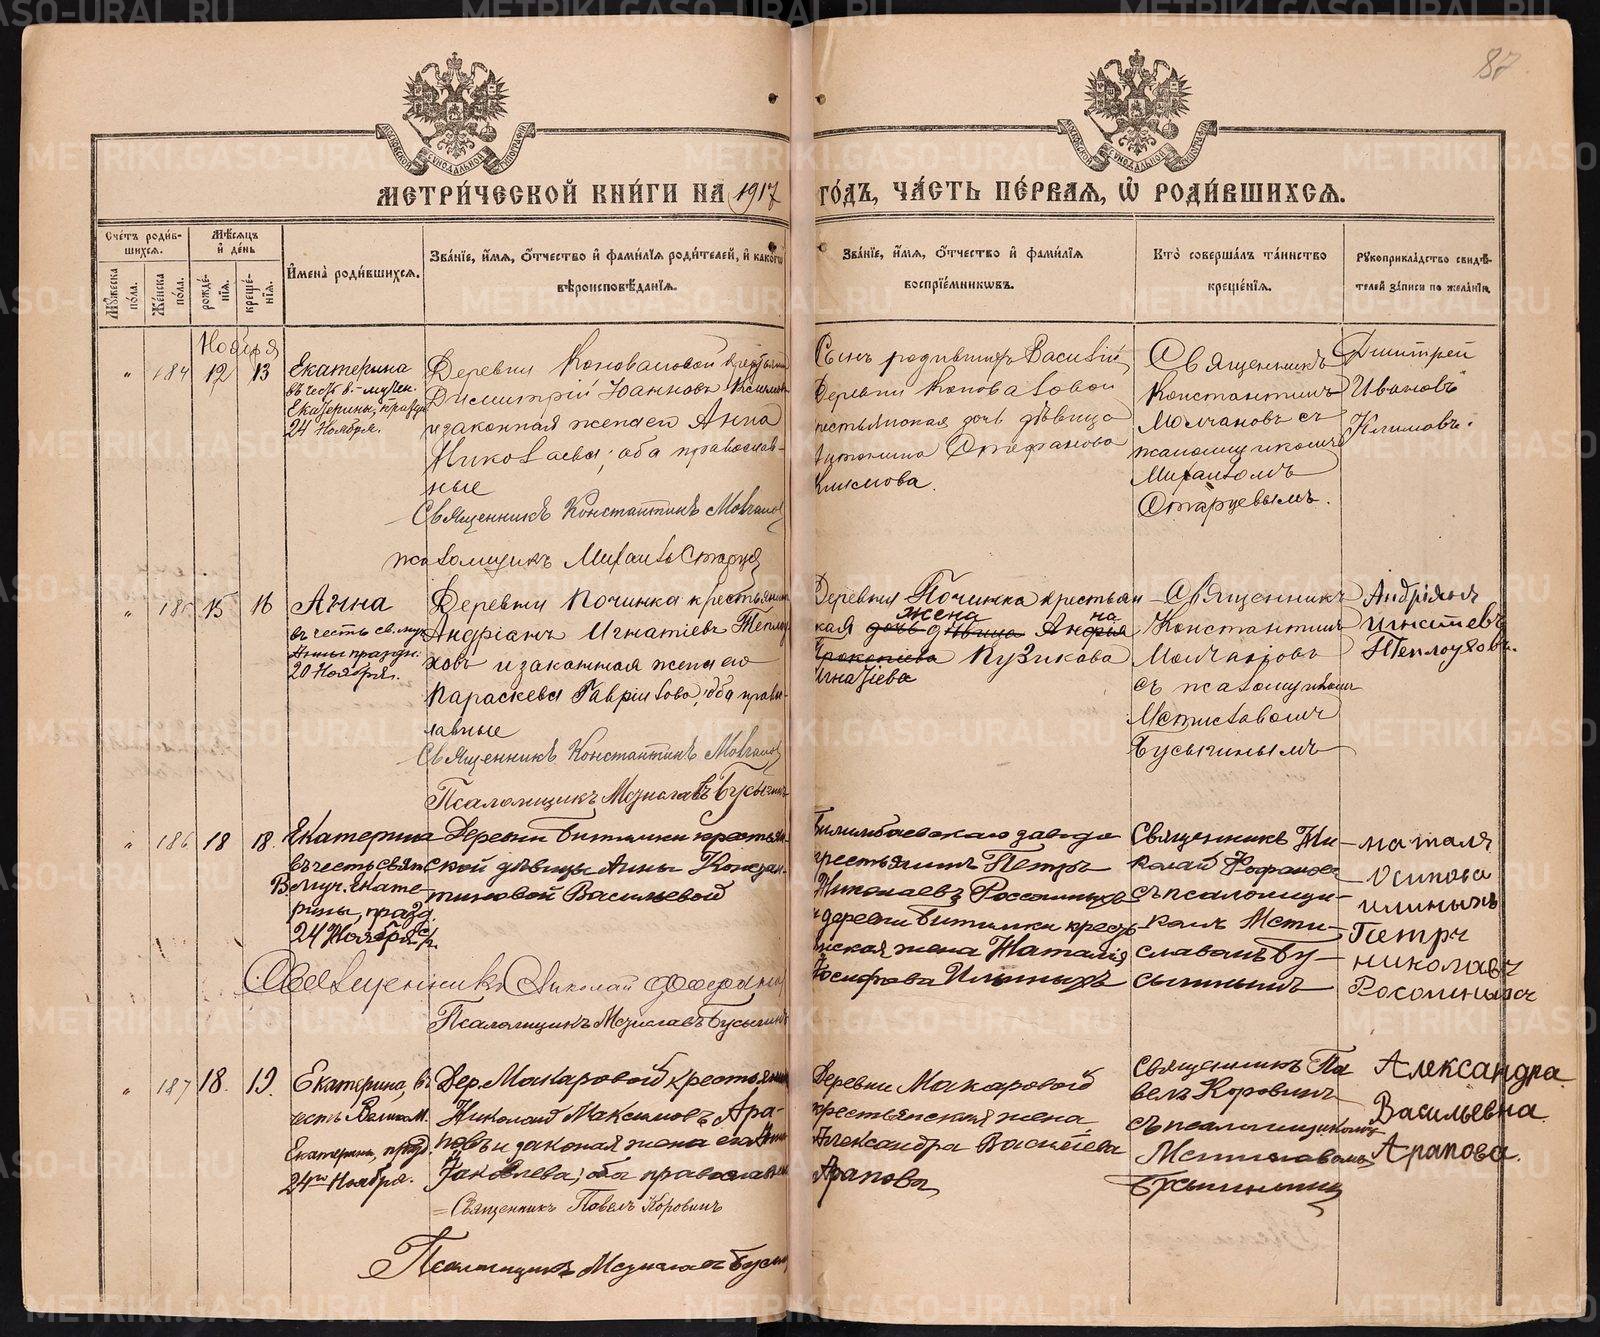 87
МОСКОВСКОЙ СѴНОДАЛЬНОЙ ТИПОГРАФІИ
МОСКОВСКОЙ СѴНОДАЛЬНОЙ ТИПОГРАФІИ
МЕТРИ́ЧЕСКОЙ КНИ́ГИ НА 1917
ГО́ДЪ, ЧА́СТЬ ПЕ́РВАЯ, Ѡ҆ РОДИ́ВШИХСЯ.
Сче́тъ роди́в-
шихся.
Мѹ́жеска по́ла.
Же́нска по́ла.
Мѣ́сяцъ
и҆ де́нь
рожде́-
нїя.
креще́-
нїя.
И҆мена̀ роди́вшихся.
Зва́нїе, и҆́мя, ѻ҆́тчество и҆ фами́лїя роди́телей, и҆ како́гѡ
вѣроисповѣ́данїя.
Зва́нїе, и҆́мя, ѻ҆́тчество и҆ фами́лїя
воспрїе́мникѡвъ.
Кто̀ соверша́лъ та́инство
креще́нїя.
Рꙋкоприкла́дство свидѣ́-
телей за́писи по жела́нїю.
Ноября
" 184 12 13
Екатерина
въ честь в.-мучен.
Екатерины, празд.
24 Ноября.
Деревни Коноваловой
Димитрій Іоанновъ Климовъ
и законная жена его Анна
Николаева; оба православ-
ные
Священникъ Константинъ Молчановъ
Псаломщикъ Михаилъ Старцев
Сынъ родившихъ Василій
Деревни Коноваловой
крестьянская дочь дѣвица
Антонина Стефанова
Климова.
Священникъ
Константинъ
Молчановъ съ
псаломщикомъ
Михаиломъ
Старцевымъ.
Дмитрей
Ивановъ
Климовъ.
" 185 15 16
Анна
въ честь св. муч.
Анны праздн.
20 Ноября.
Деревни Починка крестьянинъ
Андріанъ Игнатіевъ Теплоу-
ховъ и законная жена его
Параскева Гаврилова, оба право-
лавные
Священникъ Константинъ Молчановъ
Псаломщикъ Мстиславъ Бусыгинъ
Деревни Починка крестьян-
жена на
кая дочь дѣвица Андрія
Прокопіева Кузикова
Игнатіева
Священникъ
Константинъ
Молчановъ
съ псаломщикомъ
Мстиславомъ
Бусыгинымъ
Андріянъ
Игнатевъ
Теплоуховъ.
" 186 18 18.
Екатерина
въ честь Свят.
Вел муч. Екате-
рины, празд.
24 Ноября с/г.
Деревни Битимки крестьян-
ской дѣвицы Анны Констан-
тиновой Васильевой
Священникъ Николай Фоферанов
Псаломщикъ Мстиславъ Бусыгинъ
Билимбаевскаго завода
крестьянинъ Петръ
Николаевъ Россомныхъ
и деревни Битимки кресть-
янская жена Наталія
Іосифова Ильиныхъ
Священникъ Ни-
колай Фоферанов
съ псаломщи-
комъ Мсти-
славомъ Бу-
сыгинымъ
наталя
Осипова
илиныхъ
Петръ
николаевъ
Росоменыхъ
" 187 18. 19.
Екатерина, въ
честь Великом.
Екатерины, празд.
24го Ноября.
Дер. Макаровой крестьянинъ
Николай Максимовъ Ара-
повъ и законая жена его Анна
Яковлева; оба православные
Священникъ Павелъ Коровинъ
Псаломщикъ Мстиславъ Бусыгин
Деревни Макаровой
крестьянская жена
Александра Васильева
Арапова
Священникъ Па-
велъ Коровинъ
съ псаломщикомъ
Мстиславомъ
Бусыгинымъ
Александра
Васильевна
Арапова.
METRIKI.GASO-URAL.RU